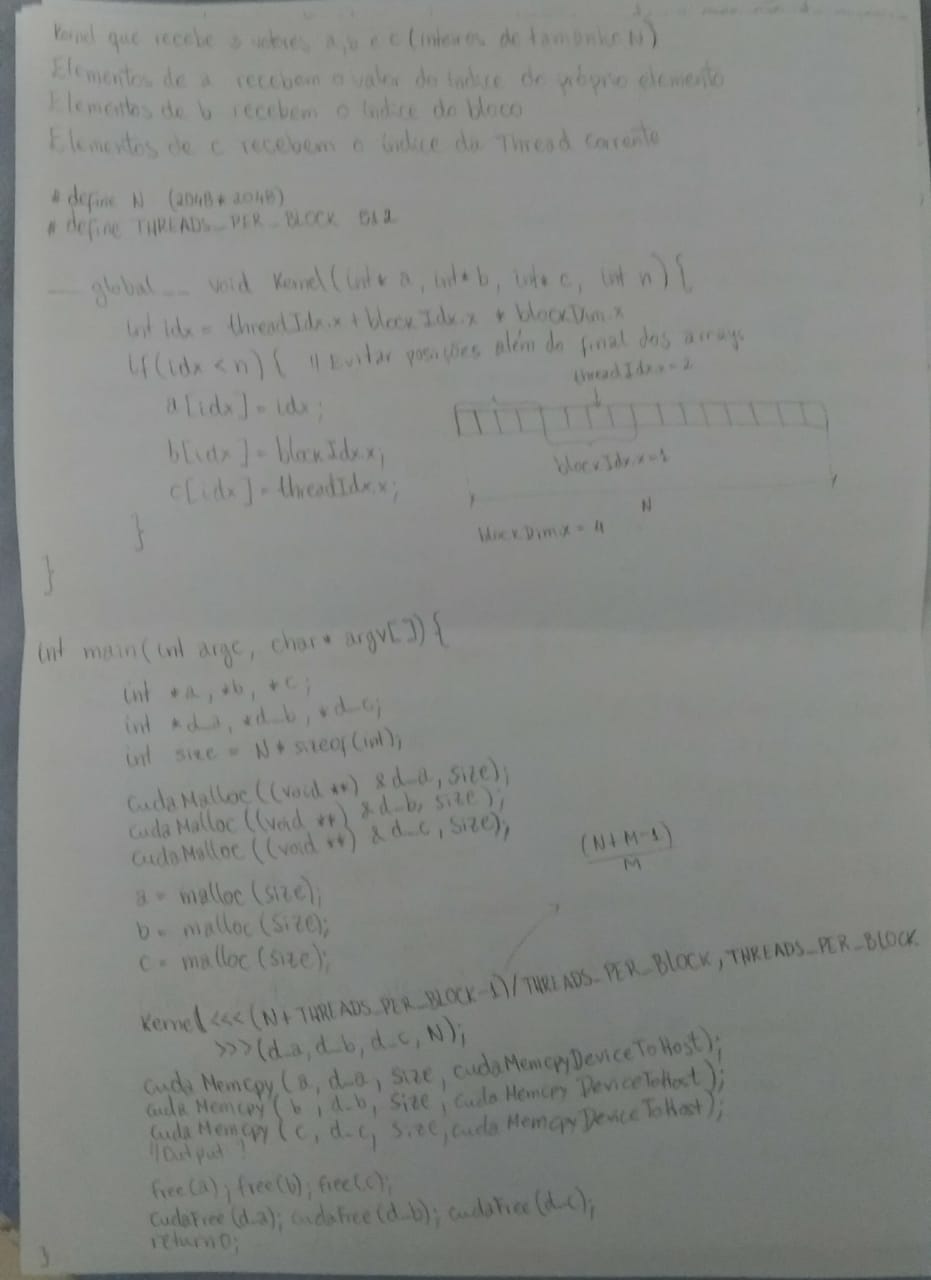 Kernel que recebe 3 vetores a, b e c (inteiros de tamanho N)
Elementos de a recebem o valor do índice do próprio elemento
Elementos de b recebem o índice do bloco
Elementos de c recebem o índice da Thread corrente
#define N (2048*2048)
#define THREADS_PER_BLOCK 512
__global__ void Kernel(int* a, int* b, int* c, int n){
int idx = threadIdx.x + blockIdx.x * blockDim.x
if(idx < n){ // Evitar posições além do final dos arrays
threadIdx.x = 2
a[idx] = idx;
b[idx] = blockIdx.x;
blockIdx.x=1
c[idx] = threadIdx.x;
N
blockDim.x = 4
}
}
int main(int argc, char* argv[]){
int *a, *b, *c;
int *d_a, *d_b, *d_c;
int size = N * sizeof(int);
cudaMalloc((void **) &d_a, size);
cudaMalloc((void **) &d_b, size);
cudaMalloc((void **) &d_c, size);
(N+M-1)
M
a = malloc(size);
b = malloc(size);
c = malloc(size);
Kernel<<<(N+THREADS_PER_BLOCK-1)/THREADS_PER_BLOCK, THREADS_PER_BLOCK
>>>(d_a, d_b, d_c, N);
cudaMemcpy(a, d_a, size, cudaMemcpyDeviceToHost);
cudaMemcpy(b, d_b, size, cudaMemcpyDeviceToHost);
cudaMemcpy(c, d_c, size, cudaMemcpyDeviceToHost);
//Output
free(a); free(b); free(c);
cudaFree(d_a); cudaFree(d_b); cudaFree(d_c);
return 0;
}